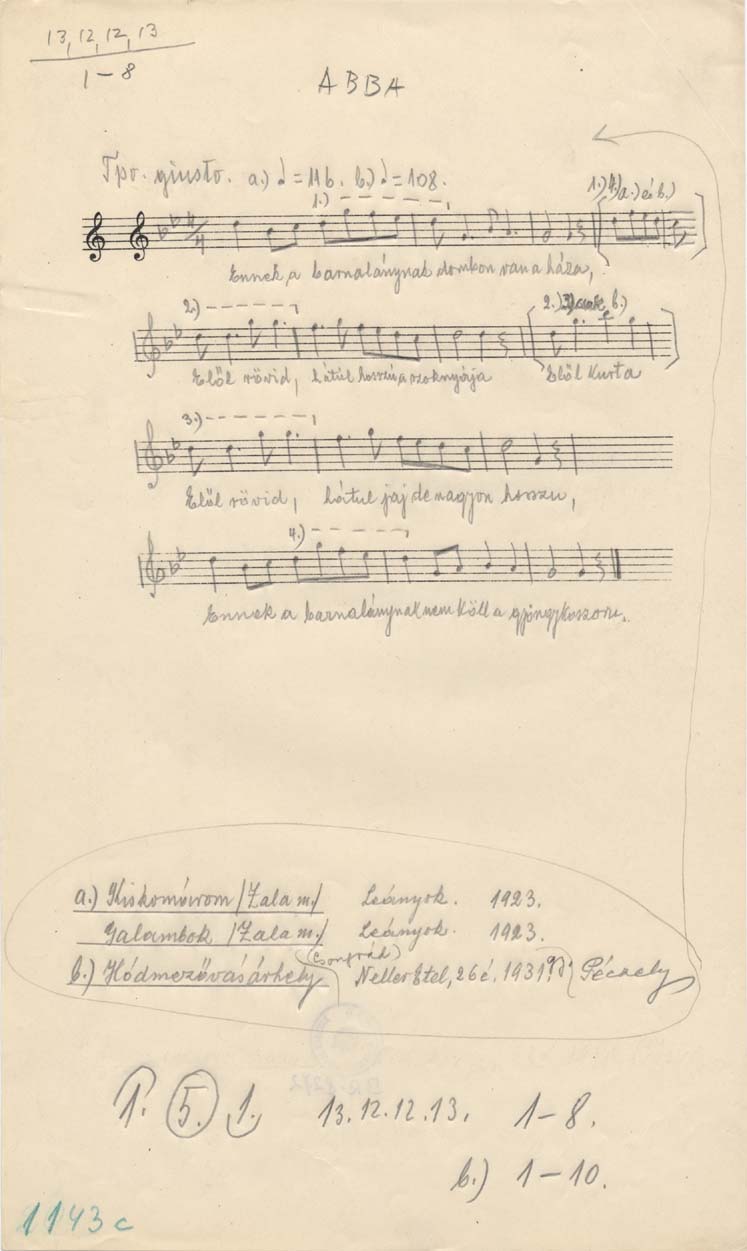 13, 12, 12, 13
1-8
ABBA
Tpo. giusto. a.) ♩=116. b.) ♩=108.
1.)
1.) 4.) a.) és b.)
4/4
Ennek a barnalánynak dombon van a háza,
2.)
2.) b.)
Elől rövid, hátúl hosszú a szoknyája
Elől kurta
3.)
Elől rövid, hátul jaj de nagyon hosszu,
4.)
Ennek a barnalánynak nem köll a gyöngykoszoru.
a.) Kiskomárom /Zala m./ Leányok. 1923.
Galambok /Zala m./ Leányok. 1923.
(Csongrád)
b.) Hódmezővásárhely Neller Etel, 26 é. 1931. Péczely
1. 5. 1. 13. 12. 12. 13. 1-8.
b.) 1-10.
1143c